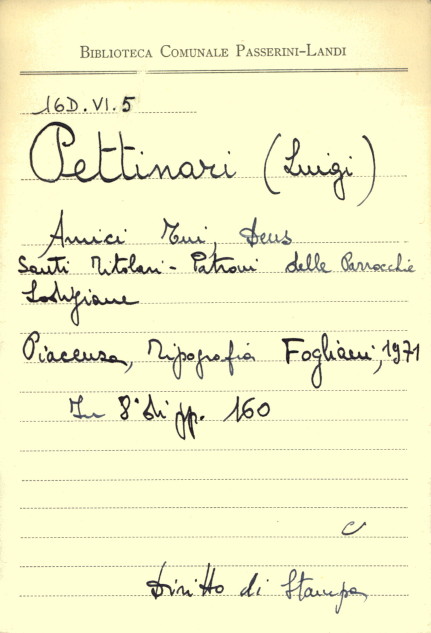 BIBLIOTECA COMUNALE PASSERINI-LANDI
16D.VI.5
Pettinari (Luigi)
Amici Tui, Deus
Santi Titolari - Patroni delle Parrocchie
Lodigiane
Piacenza, Tipografia Fogliani, 1971
In 8° di pp. 160
C
Diritto di Stampa